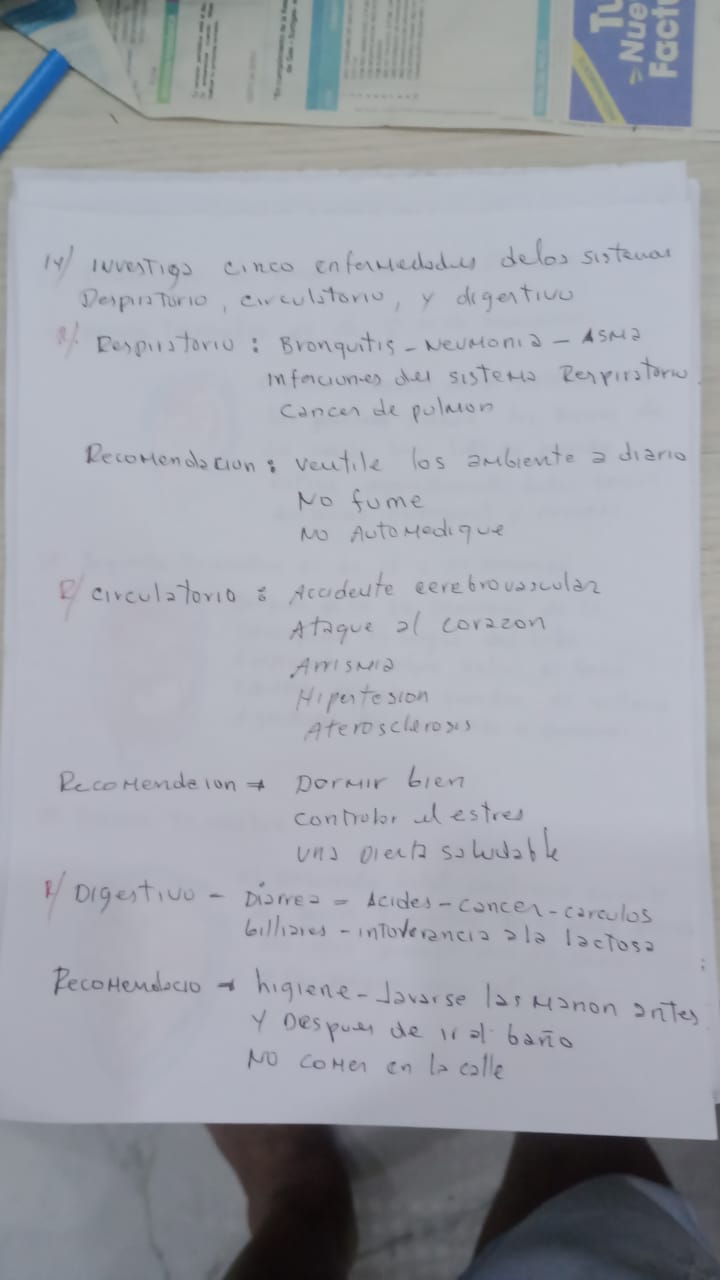 Tu
> Nue
Fact
14/ Investiga cinco enfermedades delos sistemas
Respiratorio, circulatorio, y digestivo
R/. Respiratorio : Bronquitis - Neumonia - Asma
Infeciones del sistema Respiratorio.
Cancer de pulmon
Recomendacion : ventile los ambiente a diario
No fume
No Automedique
R/ circulatorio : Accidente cerebrovascular
Ataque al corazon
Arrismia
Hipertesion
Aterosclerosis
Recomendeion → Dormir bien
controlar el estres
una dieta saludable
R/ Digestivo - Diarrea = Acides - cancer - carculos
billiares - intolerancia a la lactosa
Recomendacio → higiene - Lavarse las manon antes
Y Despues de ir al baño
No comer en la calle